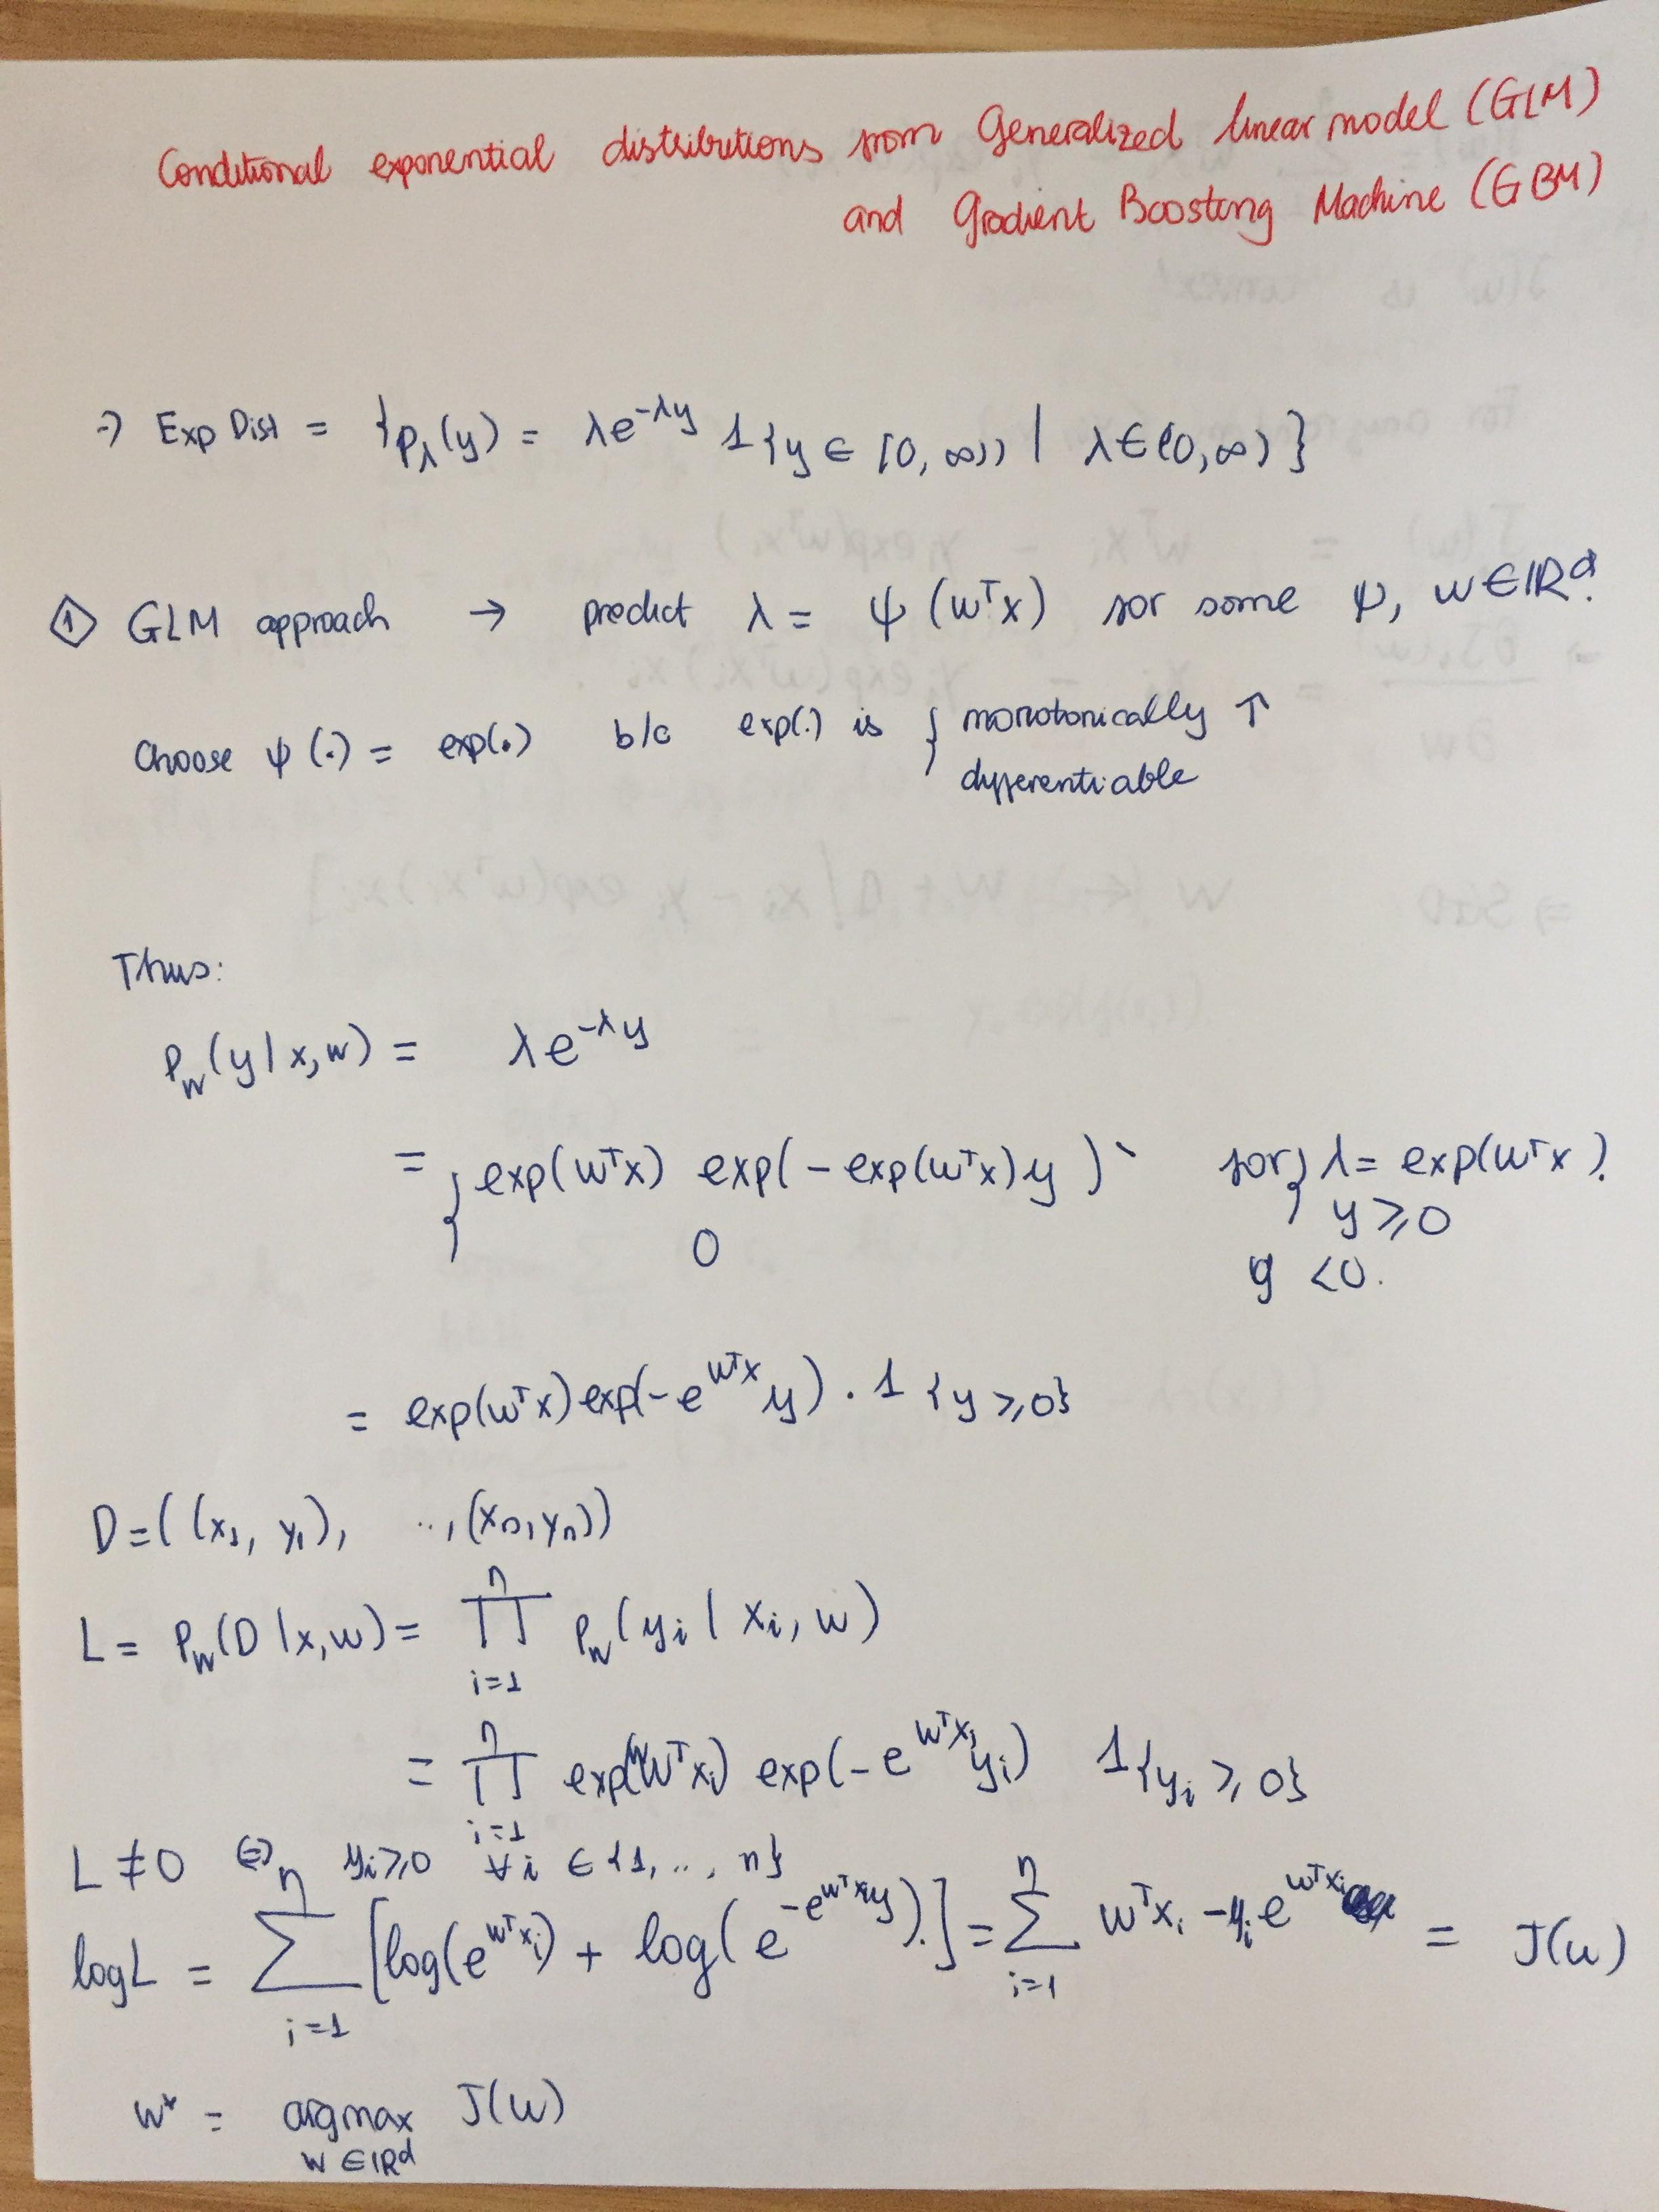 Conditional exponential distributions from Generalized linear model (GLM)
and Gradient Boosting Machine (GBM)
→ Exp Dist = { p_λ(y) = λe^{-λy} 1{y ∈ [0, ∞)} | λ ∈ (0, ∞) }
① GLM approach → predict λ = ψ(wᵀx) for some ψ, w ∈ ℝᵈ.
Choose ψ(.) = exp(.) b/c exp(.) is { monotonically ↑
differentiable
Thus:
P_w(y | x, w) = λe^{-λy}
= { exp(wᵀx) exp(-exp(wᵀx)y) for } λ = exp(wᵀx).
y ⩾ 0
0 y < 0.
= exp(wᵀx) exp(-e^{wᵀx} y) . 1{y ⩾ 0}
D = ((x₁, y₁), .., (xₙ, yₙ))
L = P_w(D | x, w) = ∏_{i=1}^{n} P_w(y_i | x_i, w)
= ∏_{i=1}^{n} exp(wᵀx_i) exp(-e^{wᵀx_i} y_i) 1{y_i ⩾ 0}
L ≠ 0 ⇔ y_i ⩾ 0 ∀i ∈ {1, .., n}
log L = ∑_{i=1}^{n} [log(e^{wᵀx_i}) + log(e^{-e^{wᵀx_i}y}).] = ∑_{i=1}^{n} wᵀx_i - y_i e^{wᵀx_i} = J(w)
w* = argmax_{w ∈ ℝᵈ} J(w)